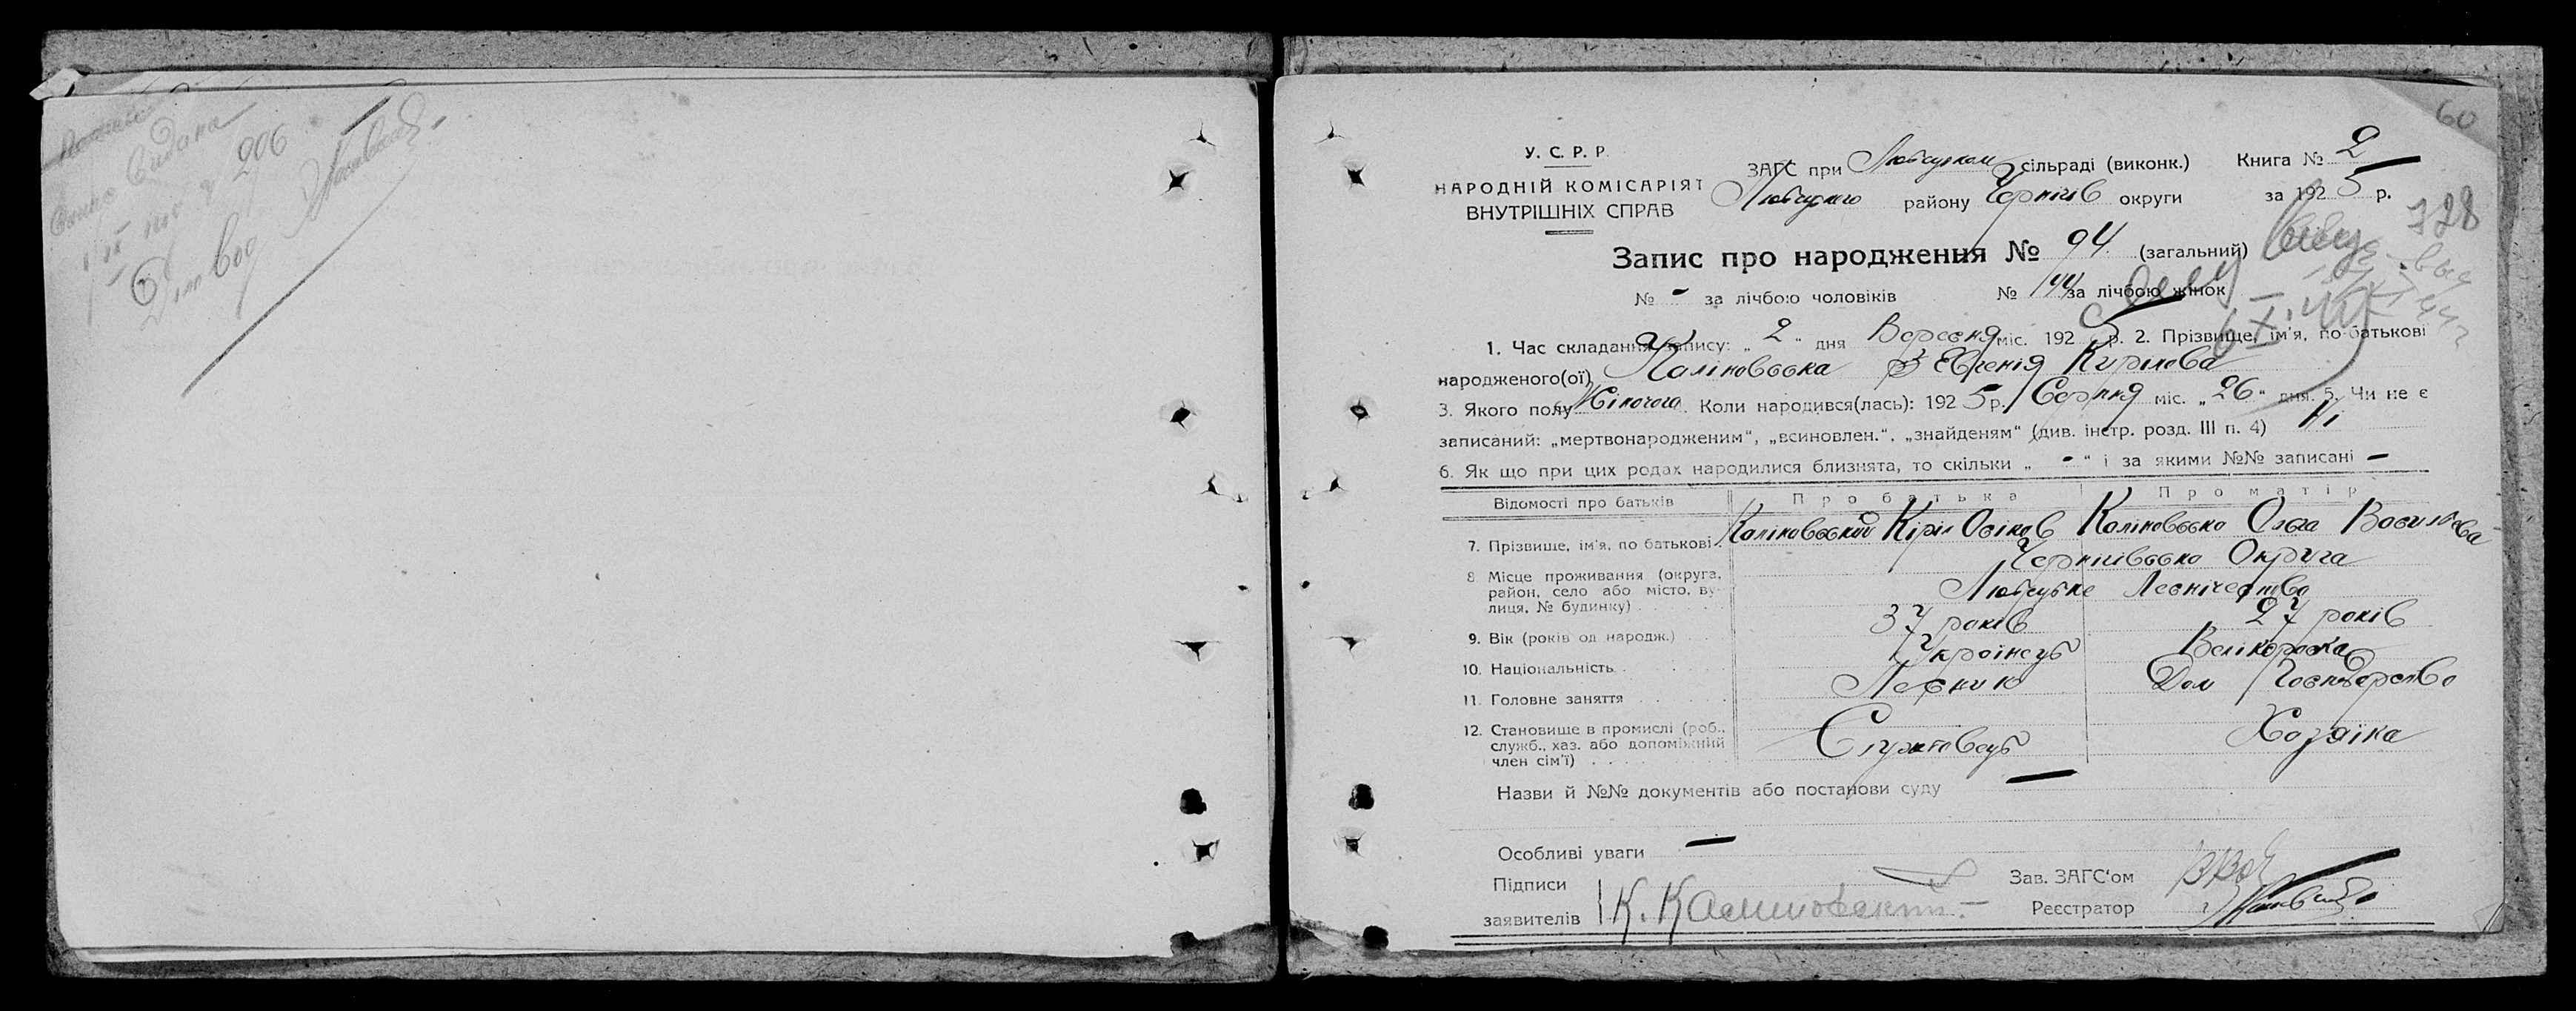 Видана
206
60
У. С. Р. Р.
НАРОДНІЙ КОМІСАРІЯТ
ВНУТРІШНІХ СПРАВ
ЗАГС при Любецком сільраді (виконк.) Книга № 2
Любецкого району Чернігів округи за 1925 р.
328
Запис про народження № 94 (загальний)
№ - за лічбою чоловіків № 44 за лічбою жінок
1. Час складання запису: „ 2 " дня Вересня міс. 1925 р. 2. Прізвище, ім'я, по-батькові
народженого(ої) Каліновська Євгенія Кирілова
3. Якого полу Жіночого. Коли народився(лась): 1925 р. Серпня міс. „ 26 " дня. 5. Чи не є
записаний: „мертвонародженим", „всиновлен.", „знайденям" (див. інстр. розд. III п. 4) Ні
6. Як що при цих родах народилися близнята, то скільки „ - " і за якими №№ записані -
Відомості про батьків Про батька Про матір
7. Прізвище, ім'я, по батькові Каліновський Кіріл Осіков Каліновська Ольга Васильова
8. Місце проживання (округа, район, село або місто, вулиця, № будинку) Чернігівська Округа
Любецьке Леснічество
9. Вік (років од народж.) 37 років 27 років
10. Національність Українець Велікороска
11. Головне заняття Лесник Дом Госпдорство
12. Становище в промислі (роб., служб., хаз. або допоміжний член сім'ї) Службовець Хозяіка
Назви й №№ документів або постанови суду —
Особливі уваги —
Підписи
заявителів К. Калиновский.
Зав. ЗАГС'ом
Реєстратор